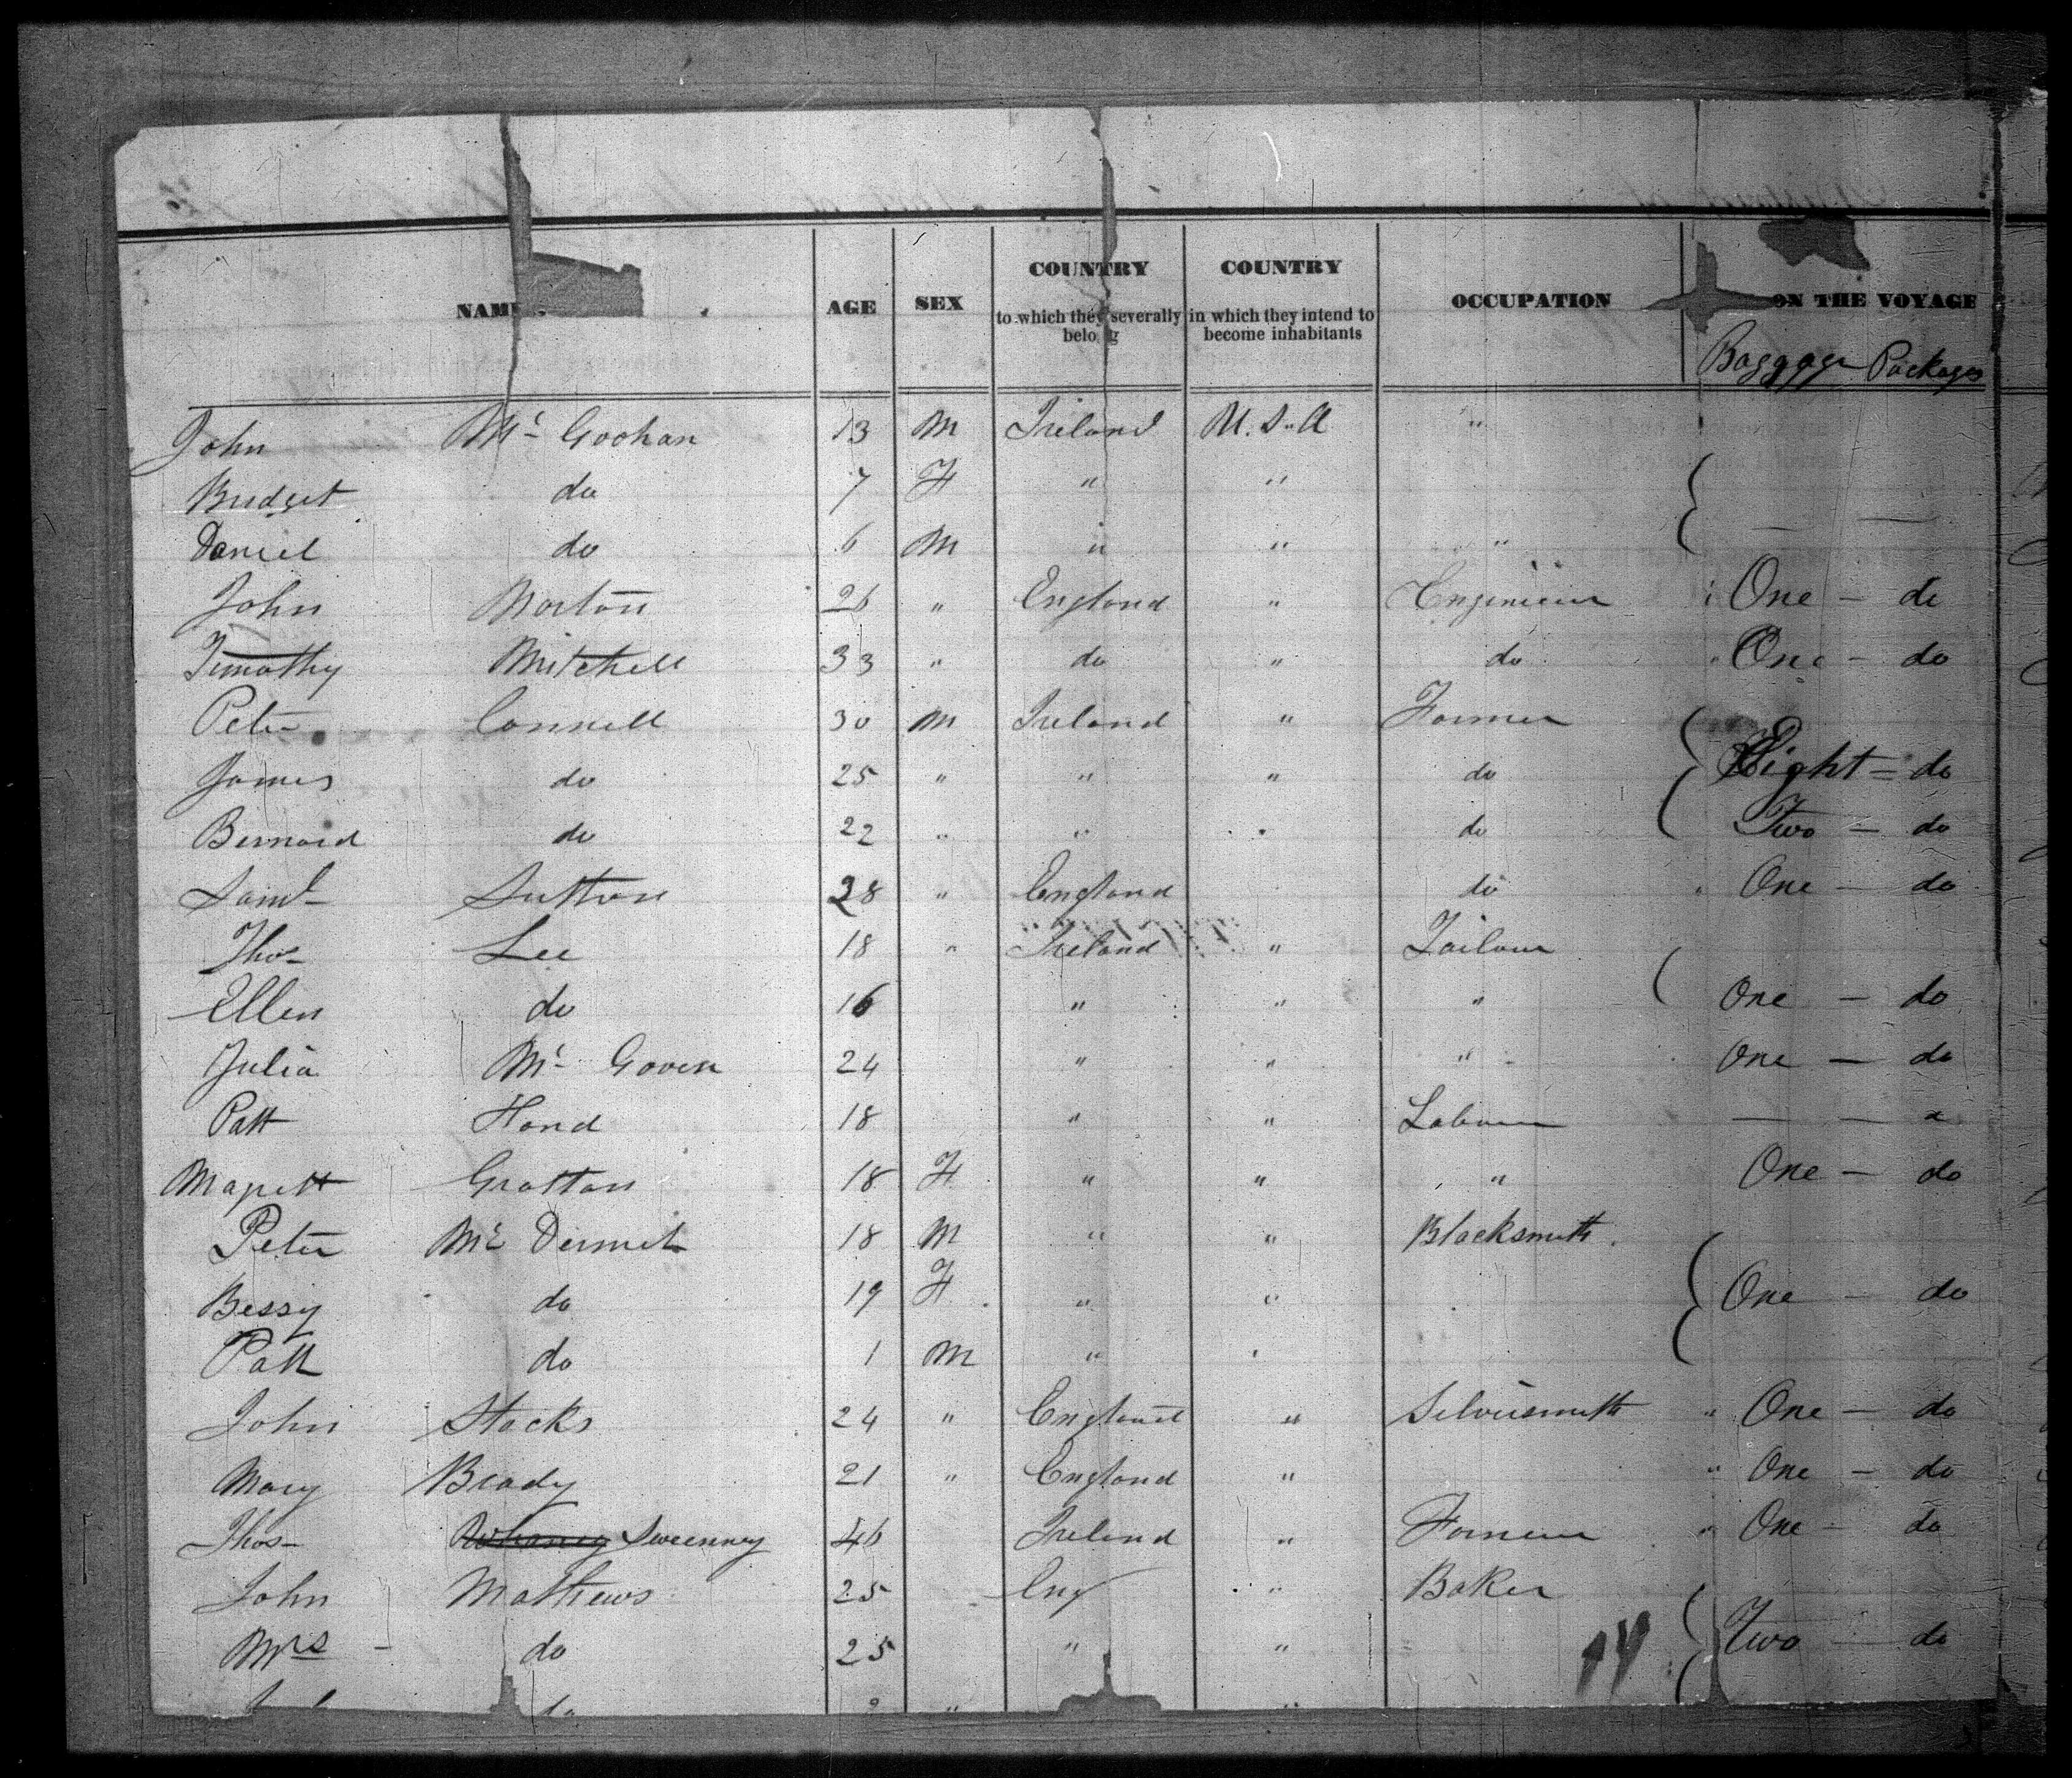 NAME AGE SEX COUNTRY to which they severally belong COUNTRY in which they intend to become inhabitants OCCUPATION ON THE VOYAGE
Baggage Packages
John Mc Goohan 13 M Ireland U.S.A "
Bridget do 7 F " "
Daniel do 6 M " " " — —
John Morton 26 " England " Engineer One — do
Timothy Mitchell 33 " do " do One — do
Peter Connell 30 M Ireland " Farmer
James do 25 " " " do Eight = do
Bernard do 22 " " " do Two — do
Saml Sutton 28 " England do One — do
Thos Lee 18 " Ireland " Tailour
Ellen do 16 " " " One — do
Julia Mc Goven 24 " " " One — do
Patt Hand 18 " " Labourer — —
Magrett Grattan 18 F " " " One — do
Peter Mc Dermet 18 M " " Blacksmith
Bessy do 19 F " " One — do
Patt do 1 M " "
John Stacks 24 " England " Silversmith " One — do
Mary Brady 21 " England " " One — do
Thos Sweenney 46 Ireland " Farmer " One — do
John Mathews 25 Eng " Baker
Mrs — do 25 " " Two — do
do " "